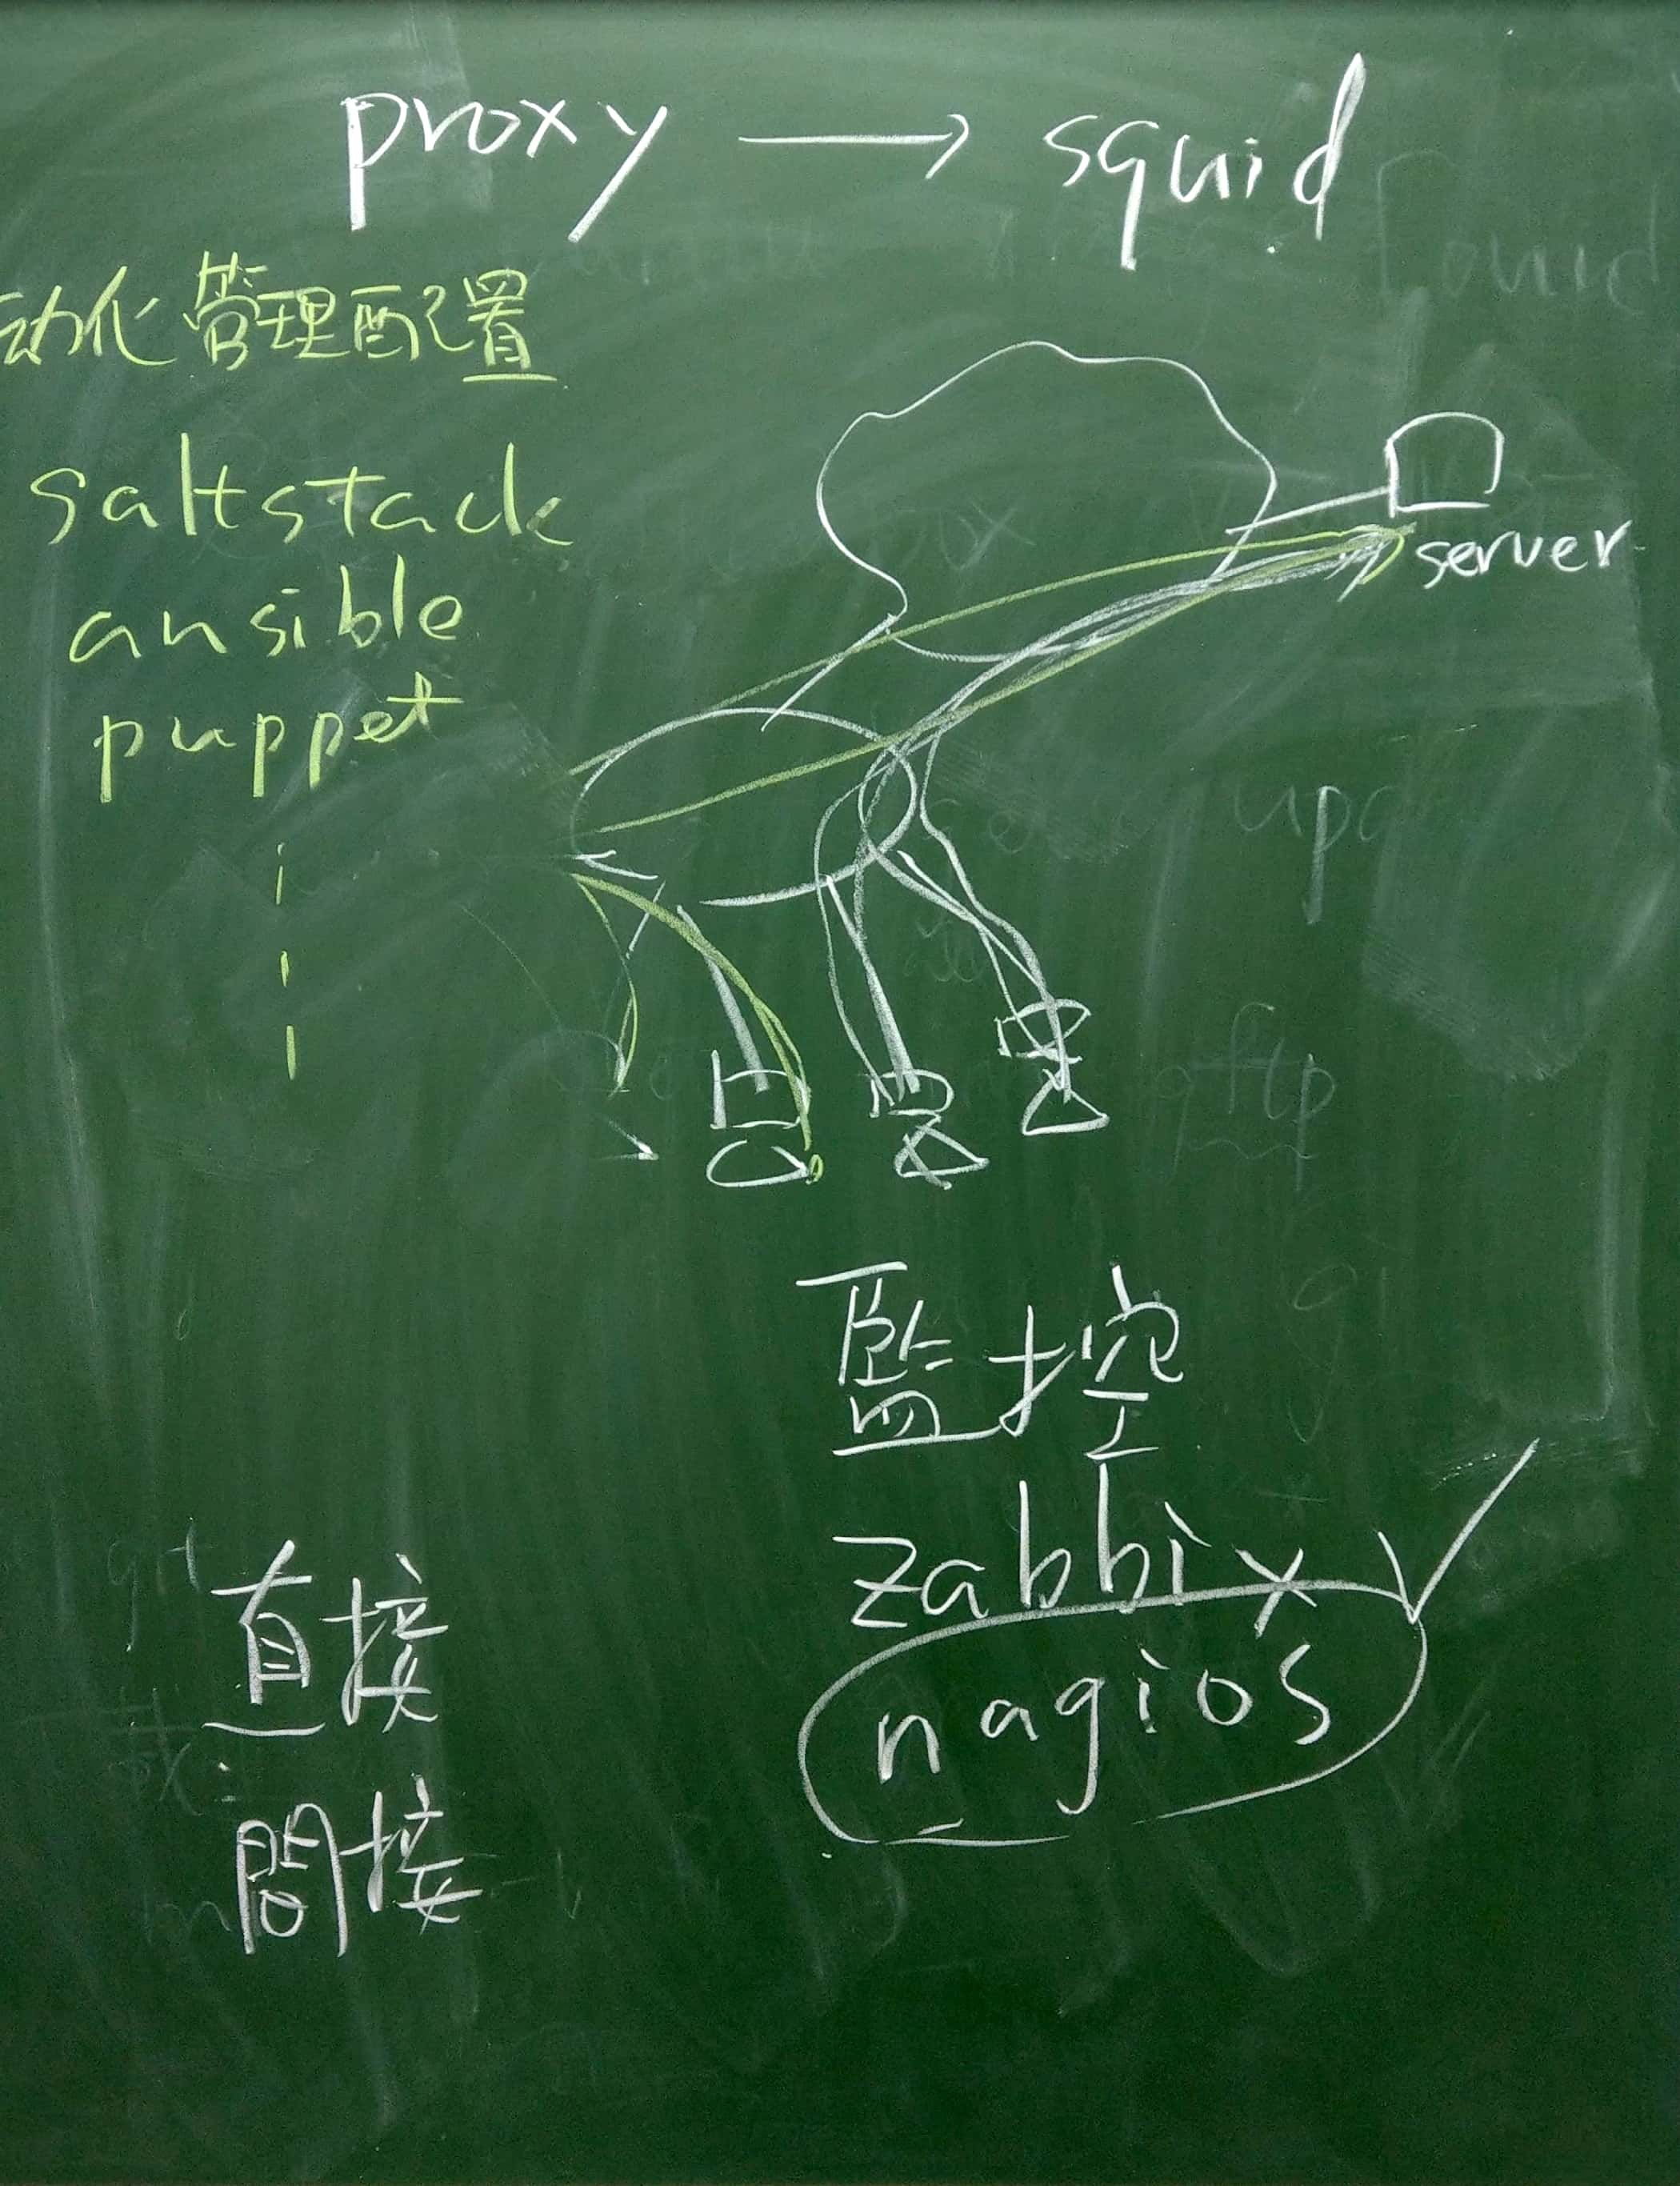 proxy → squid
动化管理配置
saltstack
ansible
puppet
server
監控
zabbix
nagios
直接
間接